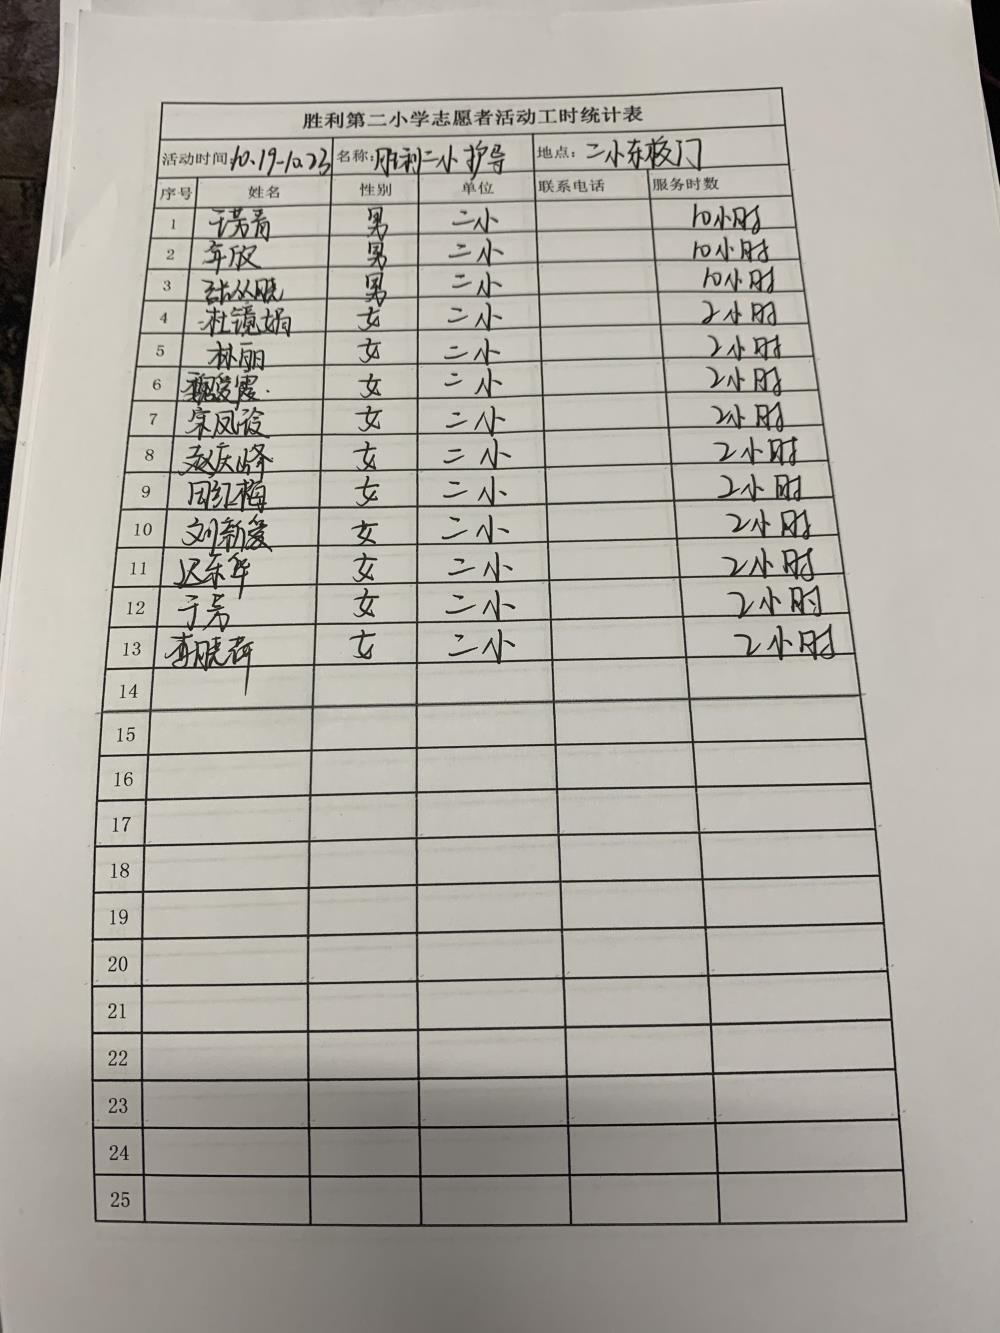 胜利第二小学志愿者活动工时统计表
活动时间:10.19-10.23 名称:胜利二小护导 地点:二小东校门
序号 姓名 性别 单位 联系电话 服务时数
1 于芳青 男 二小 10小时
2 年欣 男 二小 10小时
3 张从晓 男 二小 10小时
4 杜镜娟 女 二小 2小时
5 林丽 女 二小 2小时
6 魏爱霞 女 二小 2小时
7 宋凤玲 女 二小 2小时
8 赵庆峰 女 二小 2小时
9 周红梅 女 二小 2小时
10 刘新爱 女 二小 2小时
11 迟东华 女 二小 2小时
12 于芳 女 二小 2小时
13 李晓莉 女 二小 2小时
14
15
16
17
18
19
20
21
22
23
24
25